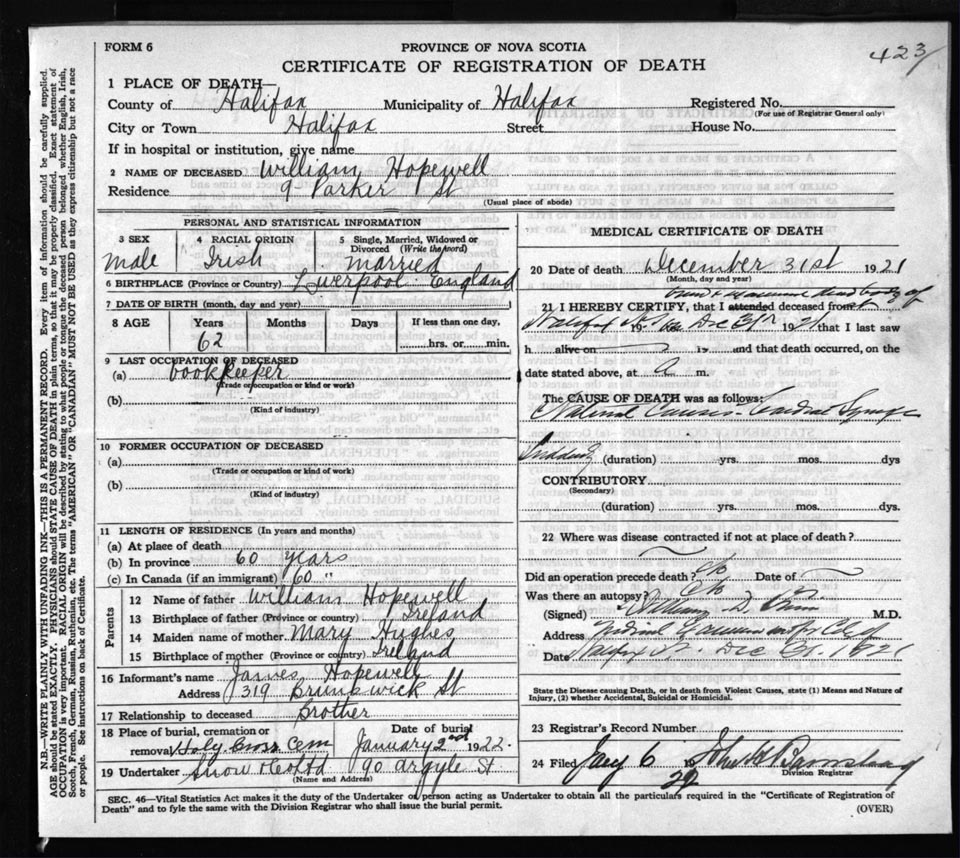 FORM 6
PROVINCE OF NOVA SCOTIA
423
CERTIFICATE OF REGISTRATION OF DEATH
1 PLACE OF DEATH—
County of Halifax Municipality of Halifax Registered No.
(For use of Registrar General only)
City or Town Halifax Street House No.
If in hospital or institution, give name
2 NAME OF DECEASED William Hopewell
Residence 9 Parker St
(Usual place of abode)
PERSONAL AND STATISTICAL INFORMATION
3 SEX 4 RACIAL ORIGIN 5 Single, Married, Widowed or Divorced (Write the word)
Male Irish Married
6 BIRTHPLACE (Province or Country) Liverpool England
7 DATE OF BIRTH (month, day and year)
8 AGE Years Months Days If less than one day,
62 hrs. or min.
9 LAST OCCUPATION OF DECEASED
(a) bookkeeper
(Trade or occupation or kind of work)
(b)
(Kind of industry)
10 FORMER OCCUPATION OF DECEASED
(a)
(Trade or occupation or kind of work)
(b)
(Kind of industry)
11 LENGTH OF RESIDENCE (In years and months)
(a) At place of death
(b) In province 60 years
(c) In Canada (if an immigrant) 60 "
Parents
12 Name of father William Hopewell
13 Birthplace of father (Province or country) Ireland
14 Maiden name of mother Mary Hughes
15 Birthplace of mother (Province or country) Ireland
16 Informant's name James Hopewell
Address 319 Brunswick St
17 Relationship to deceased Brother
18 Place of burial, cremation or removal Holy Cross Cem
Date of burial January 2nd 1922.
19 Undertaker Snow & Co Ltd 90 Argyle St
(Name and Address)
MEDICAL CERTIFICATE OF DEATH
20 Date of death December 31st 1921
(Month, day and year)
dead body of
21 I HEREBY CERTIFY, that I attended deceased from at
Halifax N.S. 19 Dec 31st 1921 that I last saw
h alive on 19 and that death occurred, on the
date stated above, at m.
The CAUSE OF DEATH was as follows:
Natural Causes - Cardiac Syncope
Suddenly (duration) yrs. mos. dys
CONTRIBUTORY
(Secondary)
(duration) yrs. mos. dys.
22 Where was disease contracted if not at place of death?
Did an operation precede death? No Date of
Was there an autopsy? No
(Signed) William D. M.D.
Address Medical Examiner for City of
Date Halifax N.S. Dec 31. 1921
State the Disease causing Death, or in death from Violent Causes, state (1) Means and Nature of
Injury, (2) whether Accidental, Suicidal or Homicidal.
23 Registrar's Record Number
24 Filed Jany 6 1922 John H Barnstead
Division Registrar
SEC. 46—Vital Statistics Act makes it the duty of the Undertaker or person acting as Undertaker to obtain all the particulars required in the "Certificate of Registration of
Death" and to fyle the same with the Division Registrar who shall issue the burial permit.
(OVER)
N.B.—WRITE PLAINLY WITH UNFADING INK—THIS IS A PERMANENT RECORD. Every item of information should be carefully supplied.
AGE should be stated EXACTLY. PHYSICIANS should STATE CAUSE OF DEATH in plain terms, so that it may be properly classified. Exact statement of
OCCUPATION is very important. RACIAL ORIGIN will be described by stating to what people or tongue the deceased person belonged whether English, Irish,
Scotch, French, German, Russian, Ruthenian, etc. The terms "AMERICAN" OR "CANADIAN" MUST NOT BE USED as they express citizenship but not a race
or people. See instructions on back of Certificate.